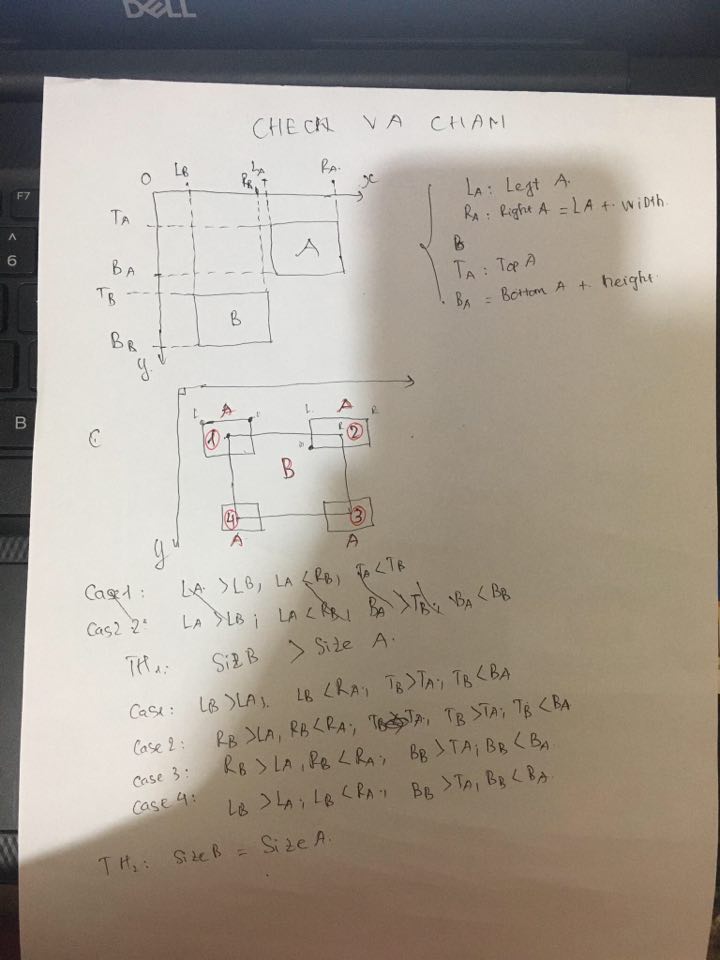 DELL
F7
^
6
B
CHECK VA CHAM
O LB RB LA RA x
TA
A
BA
TB
B
BB
y
LA: Legt A.
RA: Right A = LA + width.
B
TA: Top A
BA = Bottom A + height.
L A L A R
1 R 2
B
4 3
A A
y
Case 1: LA > LB, LA < RB, TA < TB
Cas2 2: LA > LB; LA < RB, BA > TB; BA < BB
TH1: SizB > Size A.
Case: LB > LA; LB < RA; TB > TA; TB < BA
Case 2: RB > LA, RB < RA; TB > TA; TB < BA
Case 3: RB > LA, RB < RA; BB > TA; BB < BA
Case 4: LB > LA; LB < RA; BB > TA, BB < BA
TH2: Size B = Size A.